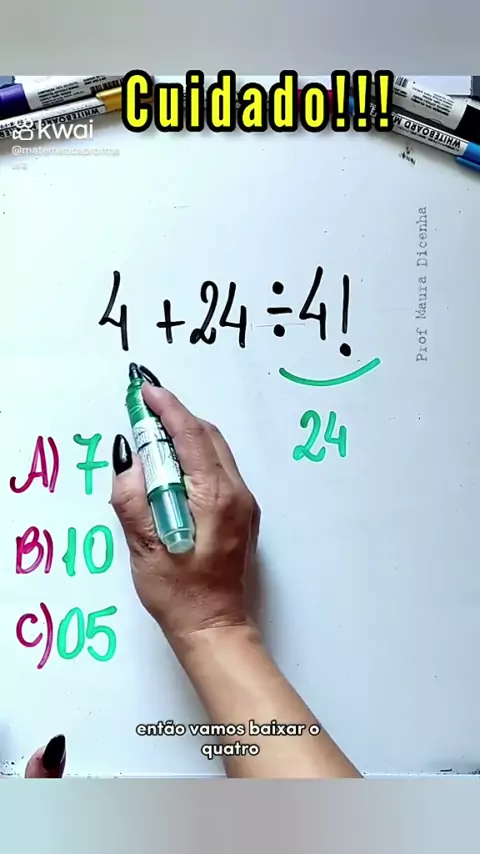 Cuidado!!!
kwai
WHITEBOARD M
Prof Maura Dicenha
4 + 24 ÷ 4!
24
A) 7
B) 10
C) 05
então vamos baixar o
quatro